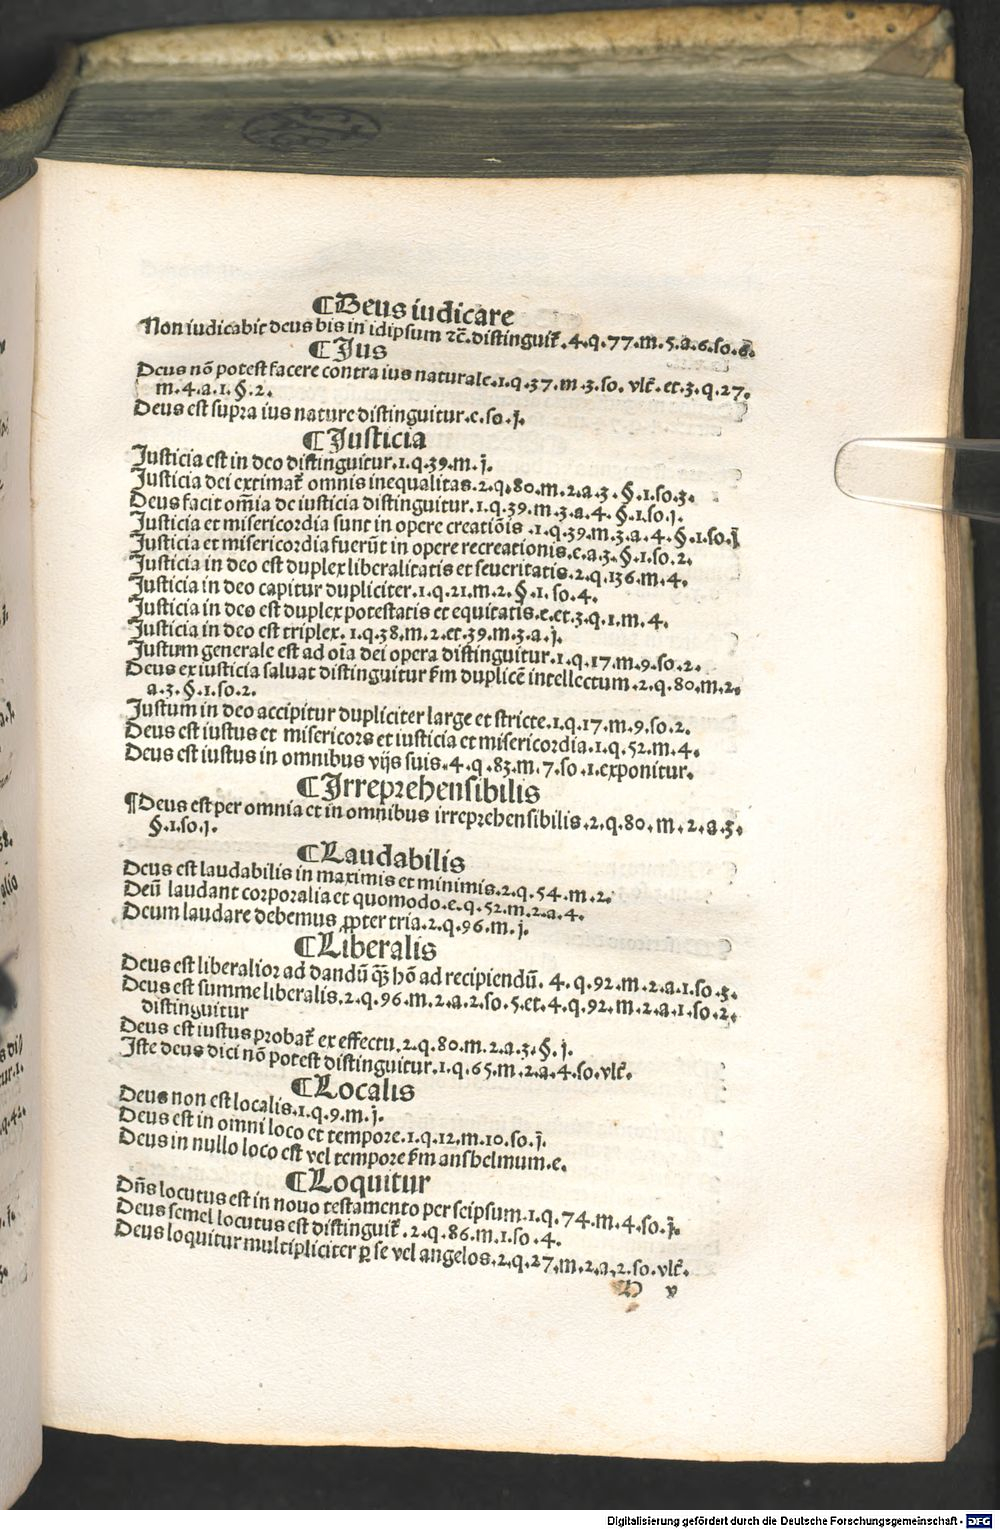 ¶Deus iudicare
Non iudicabit deus bis in idipsum ⁊c̄.distinguit᷑.4.q.77.m.5.a.6.so.6.
¶Jus
Deus nō potest facere contra ius naturale.1.q.37.m.3.so. vlt̄. et.3.q.27.
m.4.a.1.§.2.
Deus est supra ius nature distinguitur.e.so.j.
¶Justicia
Justicia est in deo distinguitur.1.q.39.m.j.
Justicia dei extimat᷑ omnis inequalitas.2.q.80.m.2.a.3.§.1.so.3.
Deus facit om̄ia de iusticia distinguitur.1.q.39.m.3.a.4.§.1.so.j.
Justicia et misericordia sunt in opere creatiōis .1.q.39.m.3.a.4.§.1.so.j
Justicia et misericordia fuerūt in opere recreationis.e.a.3.§.1.so.2.
Justicia in deo est duplex liberalitatis et seueritatis.2.q.136.m.4.
Justicia in deo capitur dupliciter.1.q.21.m.2.§.1.so.4.
Justicia in deo est duplex potestatis et equitatis.e.et.3.q.1.m.4.
Justicia in deo est triplex.1.q.38.m.2.et.39.m.3.a.j.
Justum generale est ad oīa dei opera distinguitur.1.q.17.m.9.so.2.
Deus ex iusticia saluat distinguitur s̄m duplicē intellectum.2.q.80.m.2.
a.3.§.1.so.2.
Justum in deo accipitur dupliciter large et stricte.1.q.17.m.9.so.2.
Deus est iustus et misericors et iusticia et misericordia.1.q.52.m.4.
Deus est iustus in omnibus vijs suis.4.q.83.m.7.so.1.exponitur.
¶Irreprehensibilis
¶Deus est per omnia et in omnibus irreprehensibilis.2.q.80.m.2.a.3.
§.1.so.j.
¶Laudabilis
Deus est laudabilis in maximis et minimis.2.q.54.m.2.
Deū laudant corporalia et quomodo.e.q.52.m.2.a.4.
Deum laudare debemus ꝓpter tria.2.q.96.m.j.
¶Liberalis
Deus est liberalior ad dandū qȝ hō ad recipiendū.4.q.92.m.2.a.1.so.3.
Deus est summe liberalis.2.q.96.m.2.a.2.so.5.et.4.q.92.m.2.a.1.so.2.
distinguitur
Deus est iustus probat᷑ ex effectu.2.q.80.m.2.a.3.§.j.
Iste deus dici nō potest distinguitur.1.q.65.m.2.a.4.so.vlt̄.
¶Localis
Deus non est localis.1.q.9.m.j.
Deus est in omni loco et tempore.1.q.12.m.10.so.j.
Deus in nullo loco est vel tempore s̄m anshelmum.e.
¶Loquitur
Dn̄s locutus est in nouo testamento per seipsum.1.q.74.m.4.so.j.
Deus semel locutus est distinguit᷑.2.q.86.m.1.so.4.
Deus loquitur multipliciter ꝑ se vel angelos.2.q.27.m.2.a.2.so.vlt̄.
v
Digitalisierung gefördert durch die Deutsche Forschungsgemeinschaft - DFG